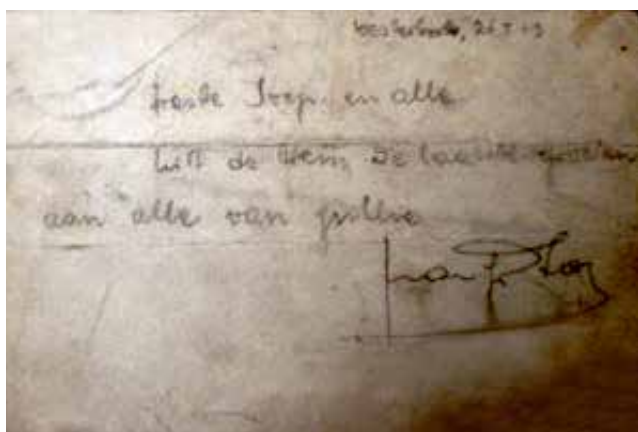 Westerbork, 26 5 43
Beste Joep. en alle
Uit de trein, de laatste groeten
aan alle van jullie